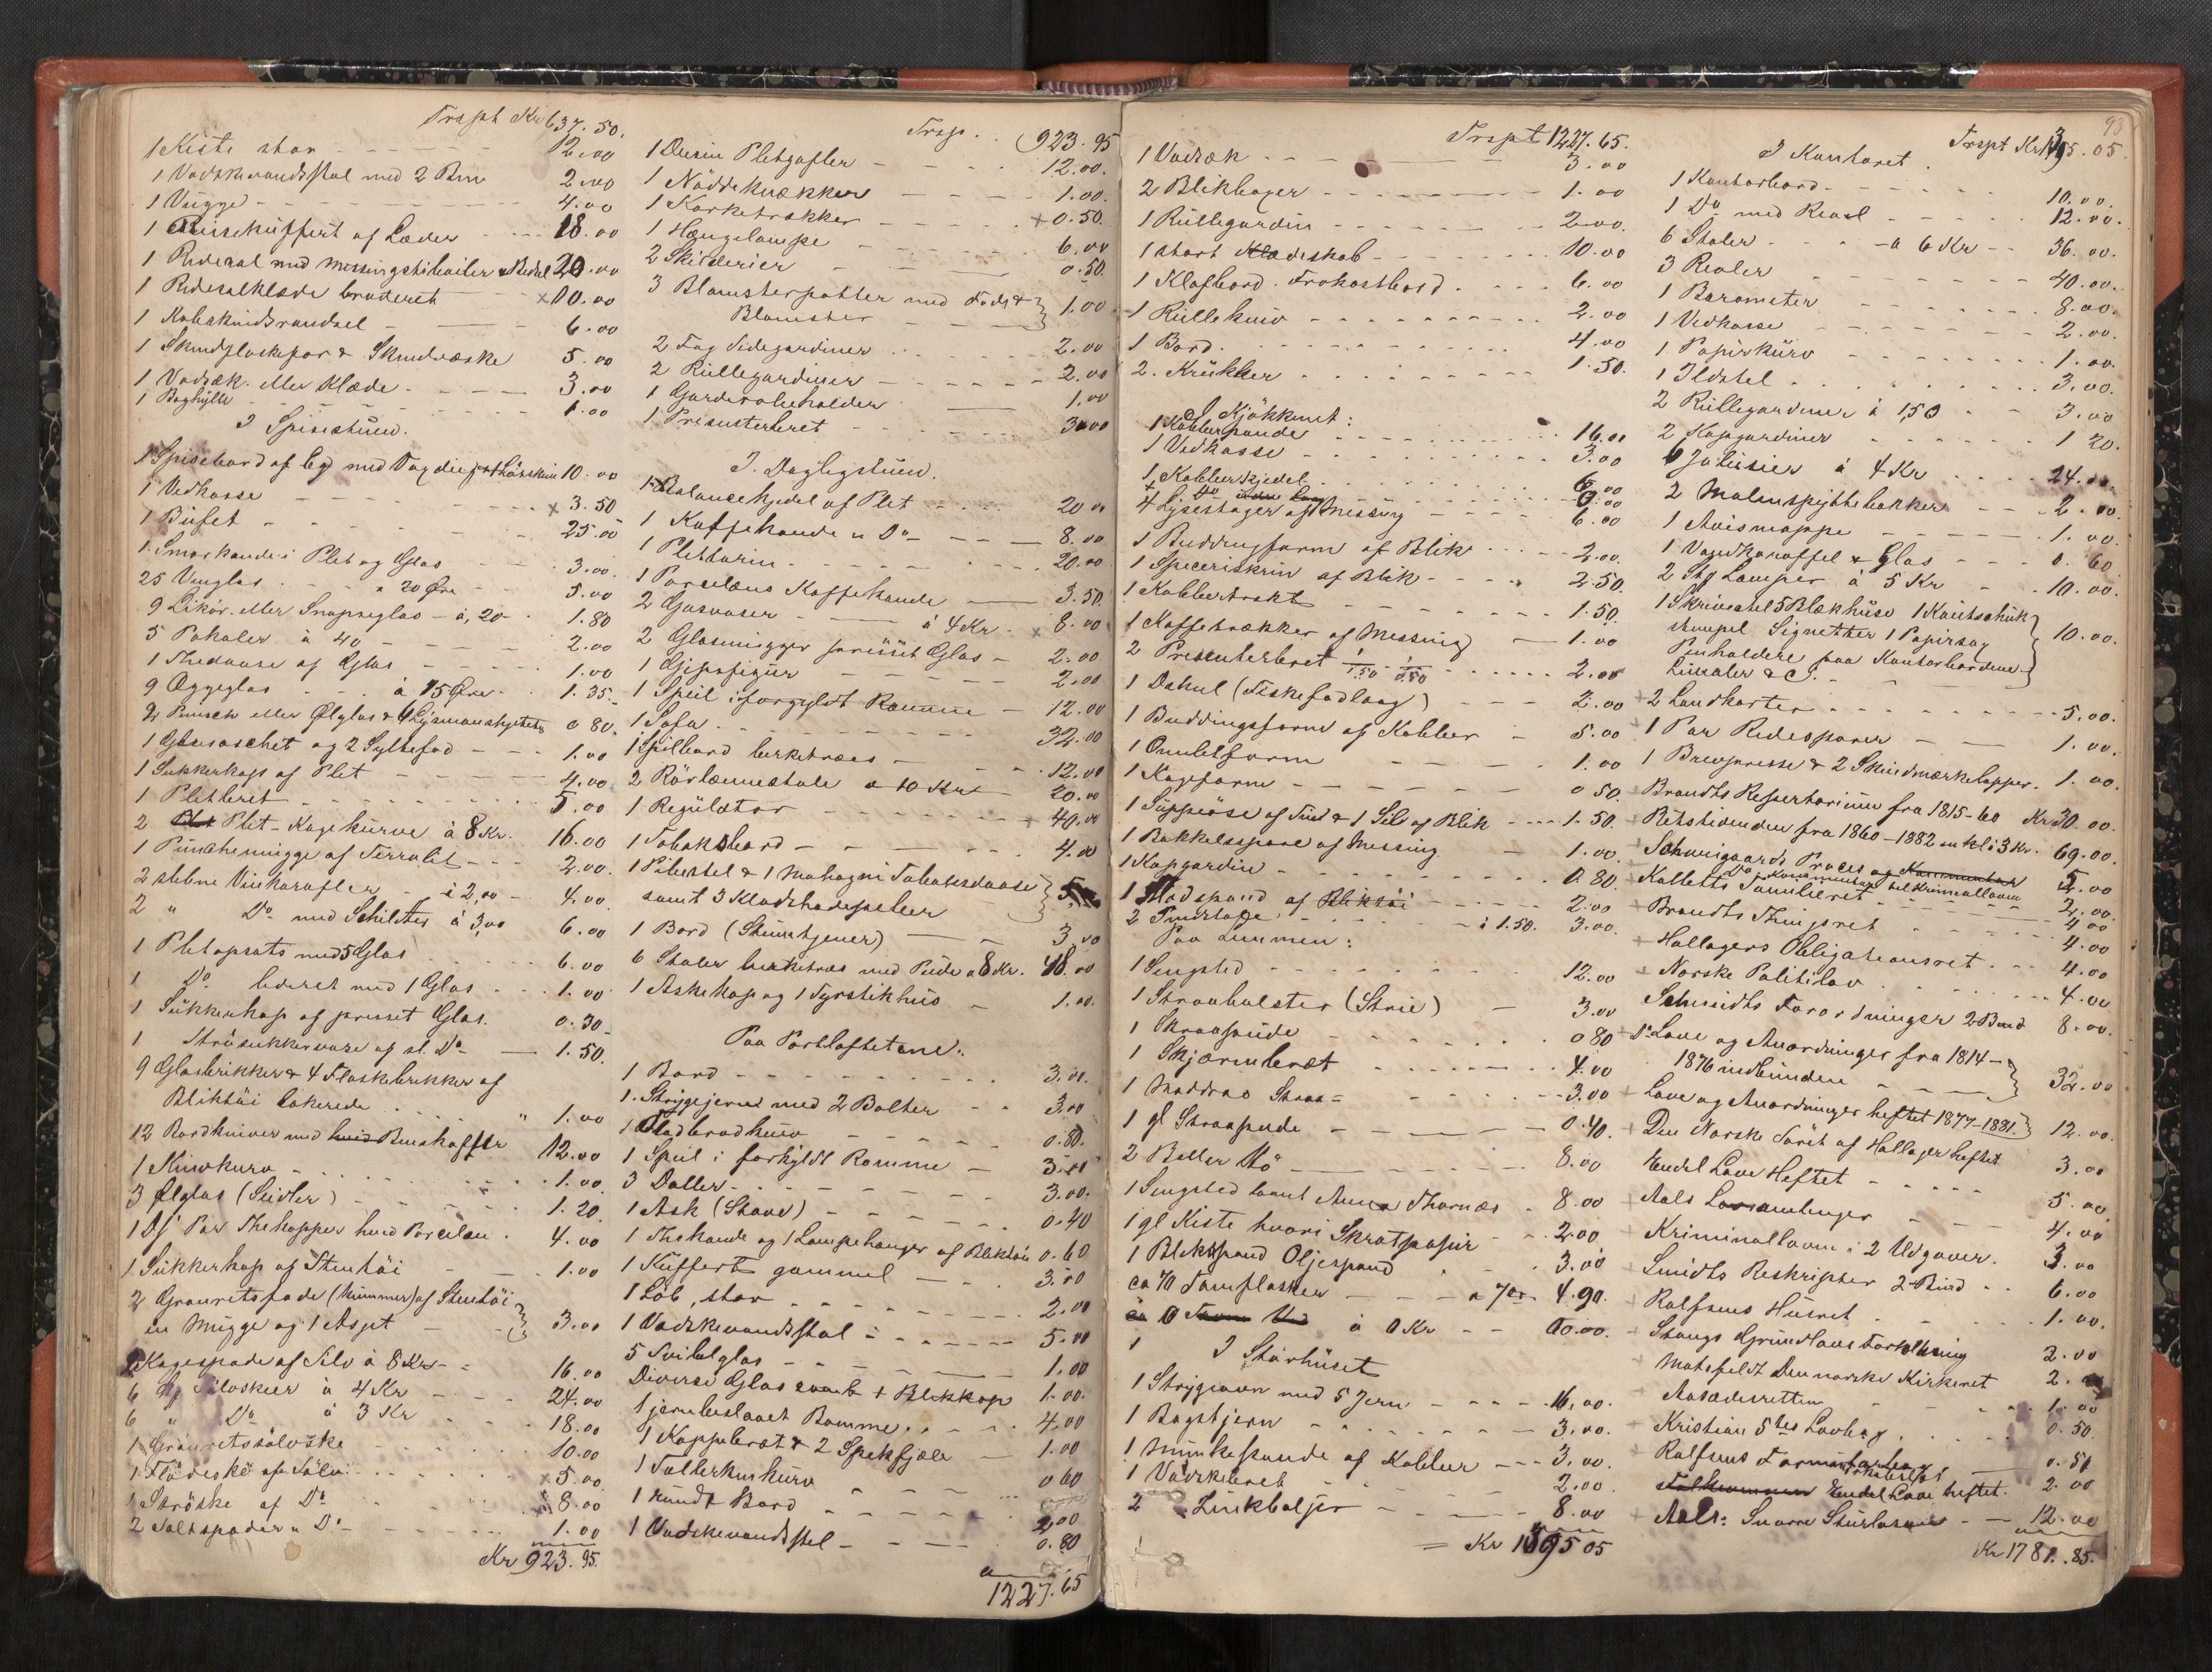 Trspt Kr 637.50.
1 Kiste stor - - - 12.00
1 Vadskevandsstol med 2 - 2.00
1 Vugge - - - 4.00
1 Reisekuffert af Læder - - - 18.00
1 Ridesal med Messingstibøiler & Bidsel 20.00
1 Ridesalklæde broderet × 10.00
1 Kobskindsrandsel - 6.00
1 Skindflaskefor & Skindvæske 5.00
1 Vadsæk eller Klæde - - - 3.00
1 Boghylle - - - 1.00
I Spisestuen.
1 Spisebord af Eg med Vogdug 10.00
1 Vedkasse - - - × 3.50
1 Bufet - - - 25.00
1 Smørkande i Plet og Glas 3.00
25 Vinglas - - à 20 Øre 5.00
9 Likør- eller Snapseglas - à, 20 - 1.80
5 Pokaler à 40 - - - 2.00
1 Thedaase af Glas - - - 1.00
9 Æggeglas - - - à 15 Øre - 1.35
2 Punsch eller Ølglas & 0 80.
1 og 2 Syltefad - - - 1.00
1 Sukkerkop af Plet - - - 4.00
1 Pletbret - - - 5.00
2 Plet-Kagekurve à 8 Kr. 16.00
1 Punchemugge af - - - 2.00
2 slebne Vinkarafler - à 2,00 - 4.00
2 " Do med Schilter à 3,00 6.00
1 Pletopsats med 5 Glas 6.00
1 Do lideret med 1 Glas - - - 1.00
1 Sukkerkop af presset Glas. 0.30
1 Strøsukkervase af sl. Do - 1.50
9 Glasbrikker & 4 Flaskebrikker af
Bliktøi lakerede - - - " 1.00
12 Bordkniver med Benskafter 12.00
1 Knivkurv - - - 1.00
3 Ølglas (Seidler) - - - 1.20
1 Dz Par Thekopper hvid Porcelæn 4.00
1 Sukkerkop af Stentøi - 1.00
2 Grauretsfade (Kummer) af Stentøi
en Mugge og 1 Asjet - } 3.00
2 Kagespade af Sølv à 8 Kr - 16.00
6 Sølvskeer à 4 Kr - - - 24.00
6 " Do à 3 Kr 18.00
1 Grauretssølvske - - - 10.00
1 Flødeske af Sølv - - - × 5.00
1 Strøske af Do 8.00
2 Saltspader " Do - - - 1.00
Kr 923.95.
Trsp. 923.95
1 Dusin Pletgafler - - - 12.00.
1 Nøddeknækker - - - 1.00.
1 Korketrækker - - - + 0.50.
1 Hængelampe - - - 6.00
2 Skilderier - - - 0.50.
3 Blomsterpotter med Fade &
Blomster - - - } 1.00
2 Fag Sidegardiner - - - 2.00
2 Rullegardiner - - - 2.00
1 Garderobeholder - 1.00
1 Presenterbret - - - 3.00
I. Dagligstuen.
1 Balancekjedel af Plet - - - 20.00
1 Kaffekande " Do - - - 8.00
1 Pletterin - - - 20.00
1 Porcelæns Kaffekande - 3.50
2 Gasvaser - - à 4 Kr. × 8.00
2 Glasmugger presset Glas - 2.00
1 Gipsfigur - - - 2.00
1 Speil i forgyldt Ramme - 12.00
1 Sofa - - - 32.00
1 Spilbord birketræes - - - 12.00
2 Rørlænestole à 10 Kr - 20.00
1 Regulator - - - + 40.00
1 Tobaksbord - - - 4.00
1 Pibestel & 1 Mahogni Tobaksdaase
samt 3 } 5.
1 Bord (Stumtjener) - - 3.00
6 Stoler birketræs med Pude à 8 Kr. 48.00
1 Askekop og 1 Fyrstikhus - 1.00.
Paa Portloftet ene:
1 Bord - - - 3.00.
1 Strygejern med 2 Bolter - - 3.00
1 Fladbrødkurv - - - 0.80.
1 Speil i forgyldt Ramme - 3.00
3 Daller - - - 3.00.
1 Ask (Stave) - - - 0.40
1 Thekande og 1 Lampehanger af Bliktøi 0.60
1 Kuffert gammel - - - 3.00
1 Løb, stor - - - 2.00
1 Vadskevandsstol - - - 5.00
5 Svibelglas - - - 1.00
Diverse Glas samt + Blikkop 1.00.
1 jernbeslaaet Bomme - - - 4.00
1 Kappebræt & 2 Spekfjæle - 1.00
1 Tallerkenkurv - - - 0 60
1 rundt Bord - - - 2.00
1 Vadskevandsstel - - - 0.80
1227.65
98
Trspt 1227.65.
1 Vadsæk - - - 3.00
2 Blikbøger - - - 1.00
1 Rullegardin - - - 2.00.
1 stort Klædeskab - - - 10.00
1 Klafbord. Frokostbord. - - - 6.00
1 Rullekurv - - - 2.00
1 Bord. - - - 4.00
2 Krukker - - - 1.50.
I Kjøkkenet:
1 Kobberpande - - - 16.00
1 Vedkasse - - - 3.00
1 Kobberkjedel - - - 6.00
4 Lysestager af Messing - - - 6.00
1 Buddingform af Blik - - - 2.00.
1 Speceriskrin af Blik - - - 2.50.
1 Kobbertrakt - - - 1.50.
1 Kaffetrækker af Messing - 1.00
2 Presenterbret 1/1.50 - 1/0.50 - - - 2.00
1 Dahul (Fiskefadlaag) - - - 2.00
1 Buddingsform af Kobber - 5.00
1 Omeletform - - - 1.00
1 Kageform - - - 0 50.
1 Suppeøse af Tin & 1 Sil af Blik - - - 1.50.
1 Bakkelsspore af Messing - 1.00.
1 Kapgardin - - - 0.80.
1 Madspand af Bliktøi - - - 2.00
2 Tindtalge - - - à 1.50. 3.00.
Paa Lemmen:
1 Sengsted - - - 12.00
1 Straabolster (Strie) - 3.00
1 Straapude - - - 0 80
1 Skjærmbræt - - - 4.00
1 Maddras Straa= - - - 3.00
1 gl Straapude - - - 0.40.
2 Baller Hø - - - 8.00
1 Sengsted laant Anna Thornæs - 8.00
1 gl Kiste hvori Skratpapir - - 2.00
1 Blikspand Oljespand - - - 3.00
ca 70 Tomflasker - - - à 7 Ør 4.90.
0 à 0 Kr - - 00.00.
I Størhuset
1 Strygeovn med 5 Jern - - - 16.00.
1 Bagstjern - - - 3.00.
1 Munkepande af Kobber - - - 3.00.
1 Vadskebret - - - 2.00
2 Zinkbaljer - - - 8.00
= Kr 1395 05
Trspt Kr 1395.05.
I Kontoret.
1 Kontorbord - - - 10.00.
1 Do med Reol - - - 12.00.
6 Stoler - - - à 6 Kr - - 36.00.
3 Reoler - - - 40.00.
1 Barometer - - - 8.00.
1 Vedkasse - - - 2.00.
1 Papirkurv - - - 1.00.
1 Ildstel - - - 3.00.
2 Rullegardiner à 1,50 - - 3.00
2 Kapgardiner - - - 1 20.
6 Jalusier à 4 Kr - - - 24.00.
2 Malmspyttebakker - - - 2.00.
1 Avismappe - - - 1.00.
1 Vandkaraffel & Glas - - - 0.60
2 Stk Lamper à 5 Kr - - - 10.00.
1 Skrivestel 5 Blækhuse 1 Kautschuk
stempel Signetter 1 Papirsax
Penholdere paa Kontorbordene
Linealer &c. } 10.00.
+ 2 Landkarter - - - 5.00.
+ 1 Par Ridesporer - - 1.00.
1 Brevpresse & 2 Skindmærkelapper. 1.00.
+ Brandts Repertorium fra 1815-60 Kr 30.00.
+ Retstidenden fra 1860-1882 inkl à 3 Kr. 69.00.
+ Schweigaards Proces og Kommentar 5.00
Do Kommentar til Kriminalloven
+ Kalletts Familieret - - - 2.00.
+ Brandts Thingsret - - - 4.00
+ Hallagers Obligationsret - - - 4.00
+ Norske Politilov - - - 4.00
Schmidts Forordninger 2 Bind 8.00.
+ Love og Anordninger fra 1814-
1876 indbunden - - - } 32.00
+ Love og Anordninger heftet 1877-1881 12.00.
+ Den Norske Søret af Hallager heftet 3.00
Endel Love Heftet - - - 5.00
+ Aals Lovsamlinger - - - 4.00
+ Kriminalloven i 2 Udgaver. 3.00
+ Smidts Reskripter 2 Bind - - 6.00
+ Rolfsens Husret - - - 1.00.
+ Stangs Grundlovs Fortolkning 2.00
+ Motzfeldt Den norske Kirkeret 2.
+ Aasædesretten - - - 1.00
+ Kristian 5tes Lovbog. - - - 0.50.
+ Rolfsens Formularbog - 0.50
Endel Love heftet. 2.00
+ Aals: Snorre Sturlason - - 12.00
Kr 1781.85.